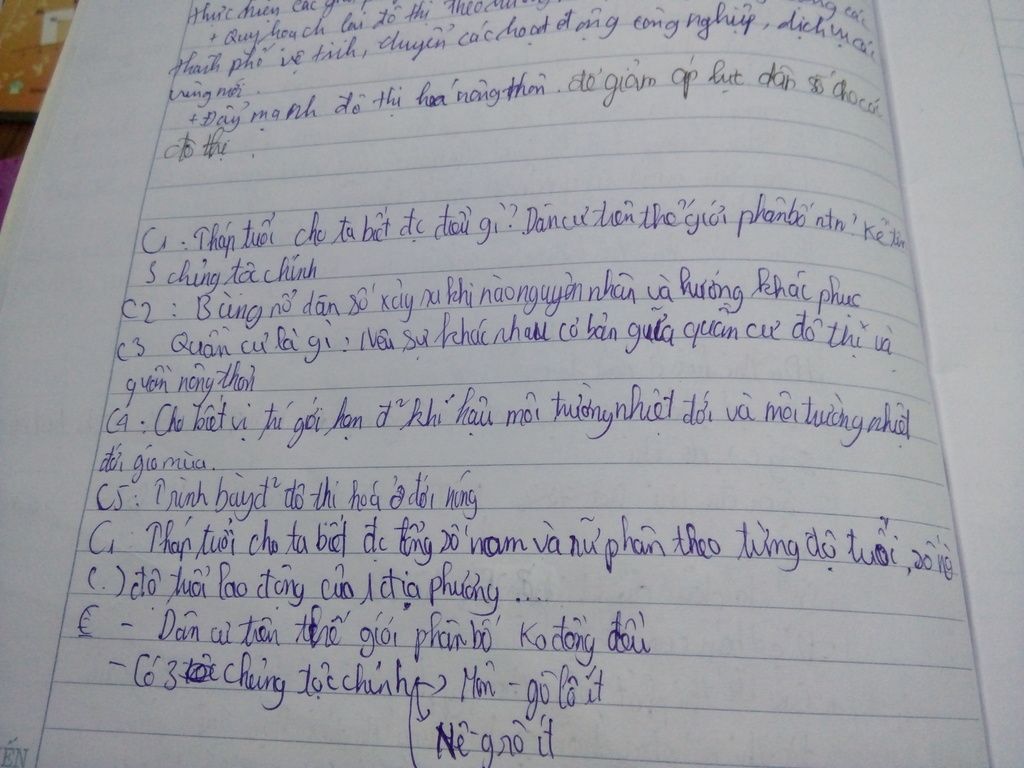 thực hiện các giải
+ Quy hoạch lại đô thị theo hướng
thành phố vệ tinh, chuyển các hoạt động công nghiệp, dịch vụ các
vùng mới.
+ Đẩy mạnh đô thị hoá nông thôn. để giảm áp lực dân số cho các
đô thị.
C1. Tháp tuổi cho ta biết đc điều gì? Dân cư trên thế giới phân bố ntn? Kể tên
3 chủng tộc chính
C2: Bùng nổ dân số xảy ra khi nào nguyên nhân và hướng khắc phục
C3 Quần cư là gì? Nêu sự khác nhau cơ bản giữa quần cư đô thị và
quần nông thôn
C4: Cho biết vị trí giới hạn đ² khí hậu môi trường nhiệt đới và môi trường nhiệt
đới gió mùa.
C5: Trình bày đ² đô thị hoá ở đới nóng
C1 Tháp tuổi cho ta biết đc tổng số nam và nữ phân theo từng độ tuổi, số ng
(.) độ tuổi lao động của 1 địa phương ....
- Dân cư trên thế giới phân bố ko đồng đều
- Có 3 chủng tộc chính → Môn-gô-lô-ít
Nê-grô ít
ẾN